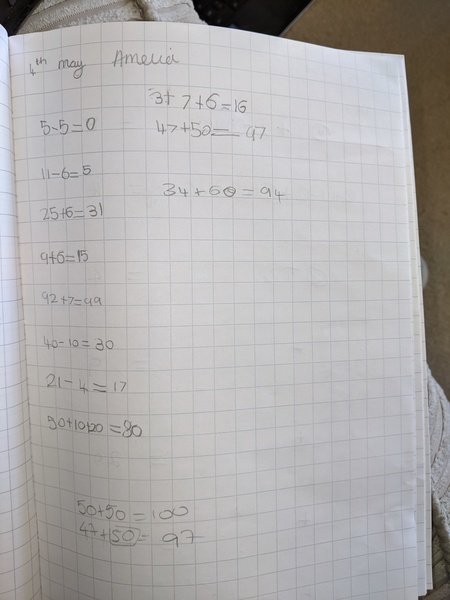 4th may Amelia
3+7+6=16
5-5=0
47+50=97
11-6=5
34+60=94
25+6=31
9+6=15
92+7=99
40-10=30
21-4=17
=80
50+50=100
47+50=97